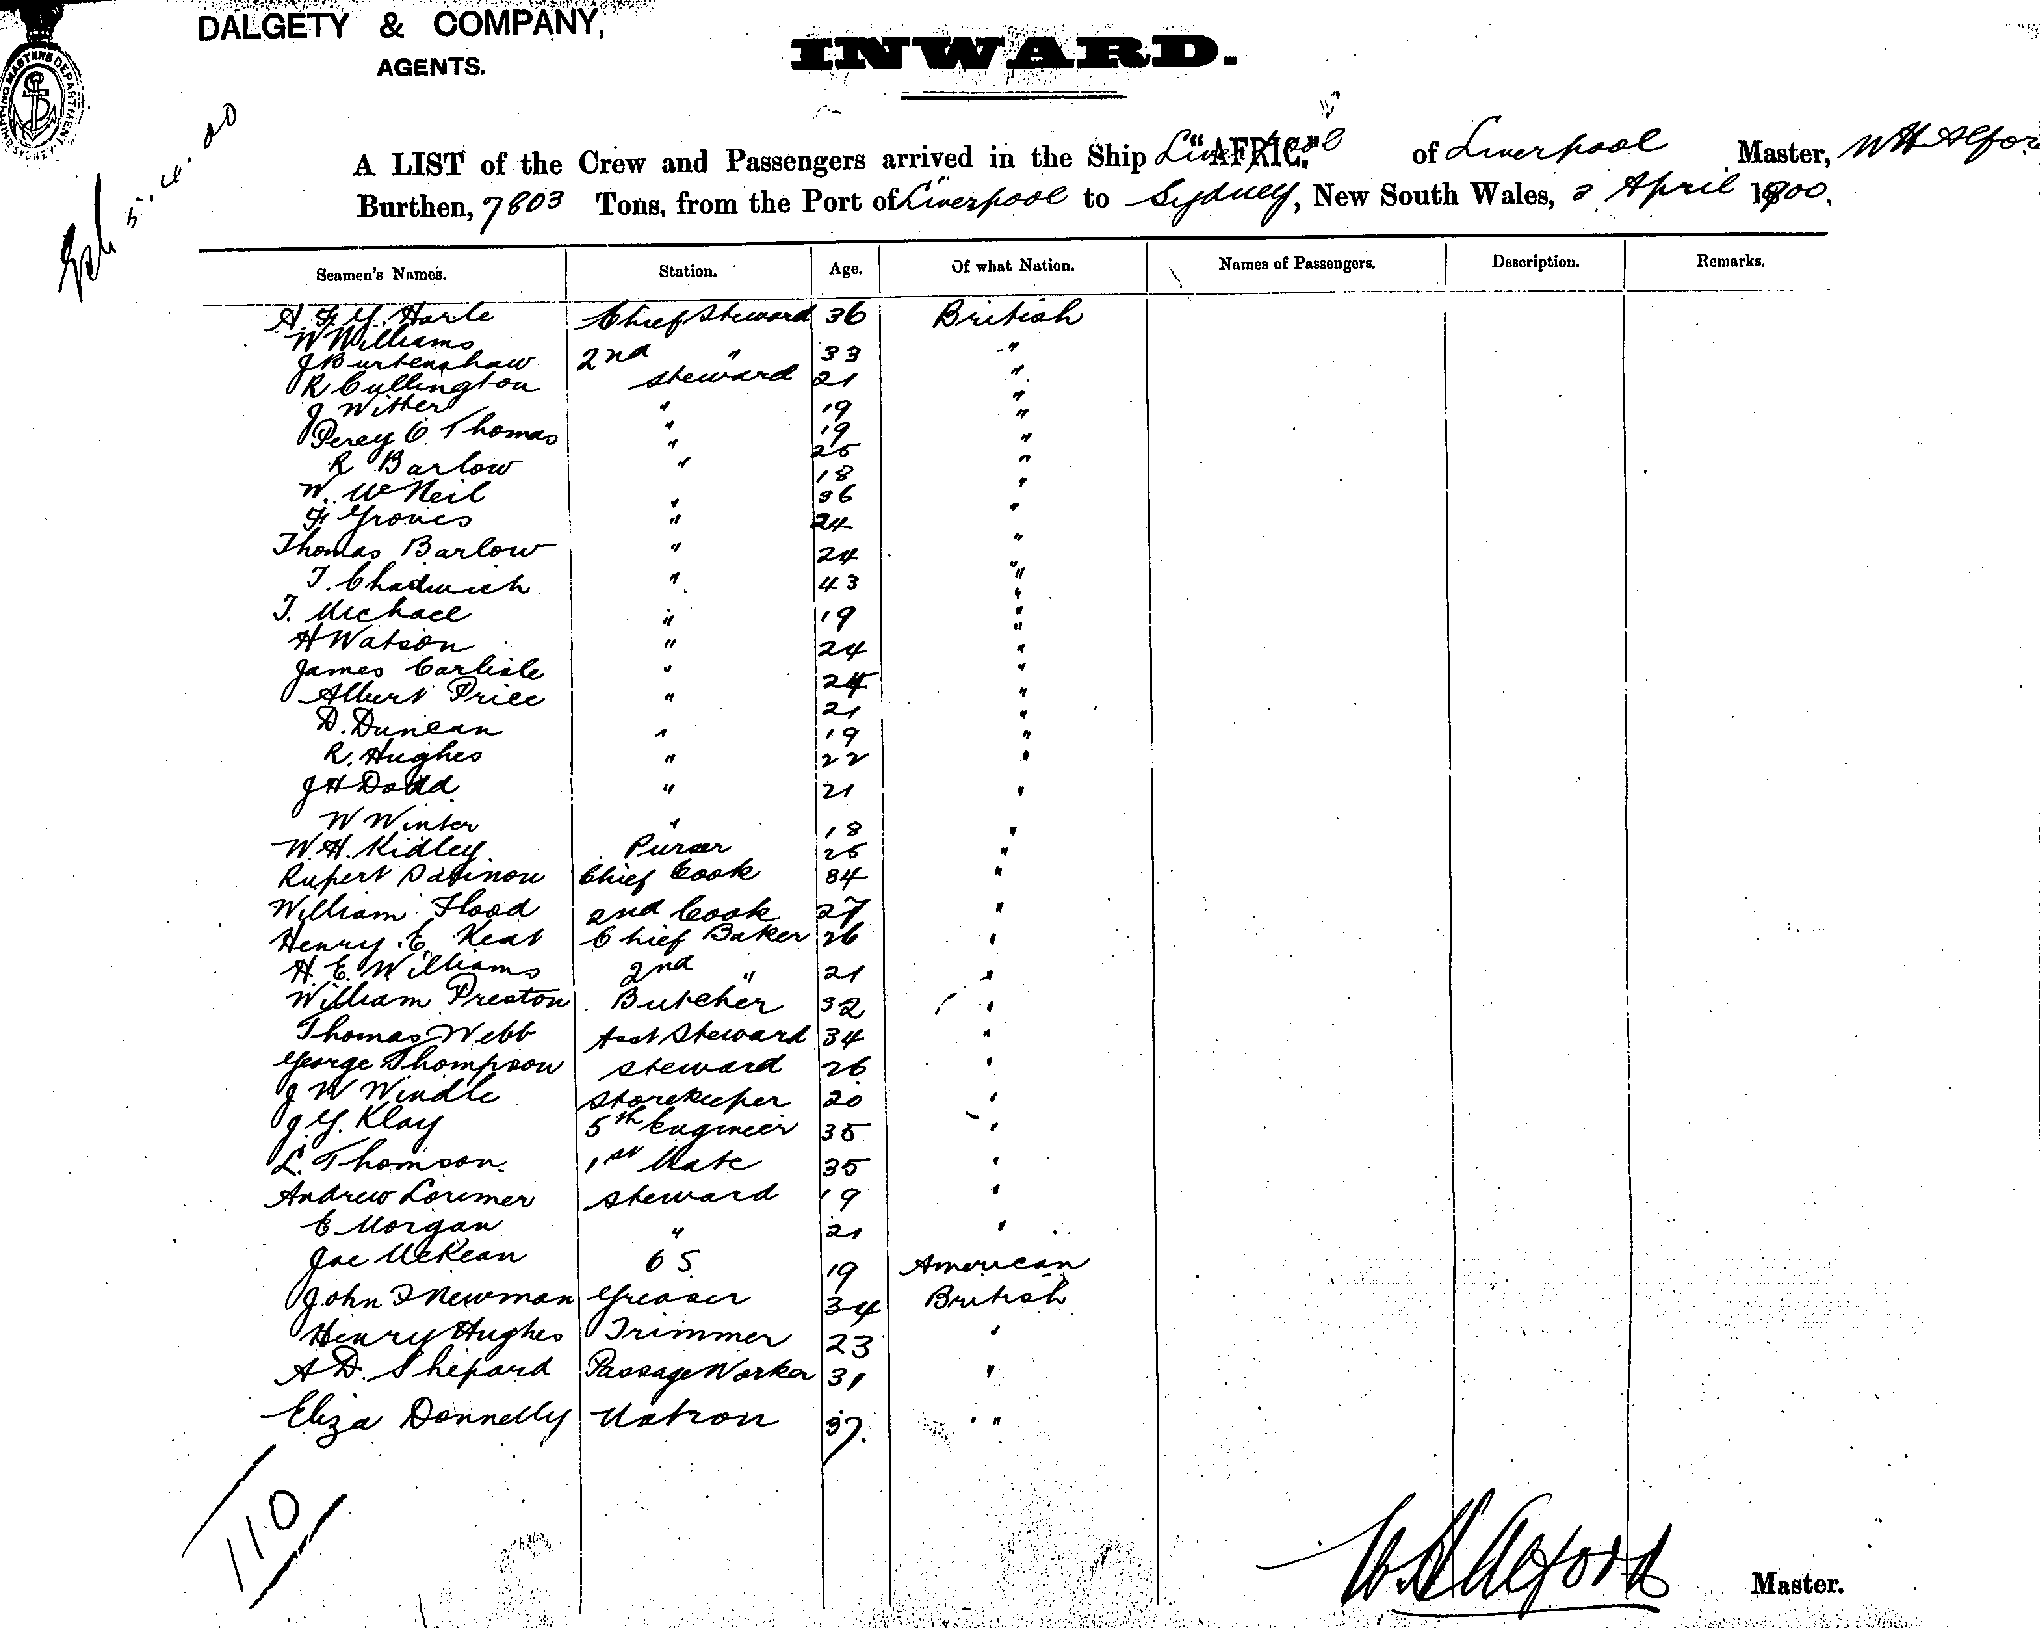 DALGETY & COMPANY,
AGENTS.
INWARD.
SHIPPING MASTERS DEPARTMENT
5.4.00
A LIST of the Crew and Passengers arrived in the Ship "AFRIC." of Liverpool Master, W H Alford
Burthen, 7803 Tons, from the Port of Liverpool to Sydney, New South Wales, 3 April 1900.
Seamen's Names. Station. Age. Of what Nation. Names of Passengers. Description. Remarks.
Harle Chief Steward 36 British
W Williams 2nd " 33 "
J Burtenshaw steward 21 "
R Cullington " 19 "
J Witter " 19 "
Percy C. Thomas " 25 "
R Barlow " 18 "
W. McNeil " 36 "
F. Groves " 24 "
Thomas Barlow " 24 "
T. Chadwick " 43 "
T. Michael " 19 "
H Watson " 24 "
James Carlisle " 24 "
Albert Price " 21 "
D. Duncan " 19 "
R. Hughes " 22 "
J H Dodd " 21 "
W Winter " 18 "
W. H. Kidley Purser 25 "
Rupert Chief Cook 34 "
William Flood 2nd Cook 27 "
Henry E Keat Chief Baker 26 "
H. E. Williams 2nd " 21 "
William Preston Butcher 32 "
Thomas Webb Asst Steward 34 "
George Thompson steward 26 "
J W Windle Storekeeper 20 "
J. Y. Klay 5th Engineer 35 "
L. Thomson 1st Mate 35 "
Andrew Lorimer steward 19 "
C Morgan " 21 "
Joe McKean OS 19 American
John I Newman Greaser 34 British
Henry Hughes Trimmer 23 "
A D. Shepard Passage Worker 31 "
Eliza Donnelly Matron 37. "
110
W H Alford Master.